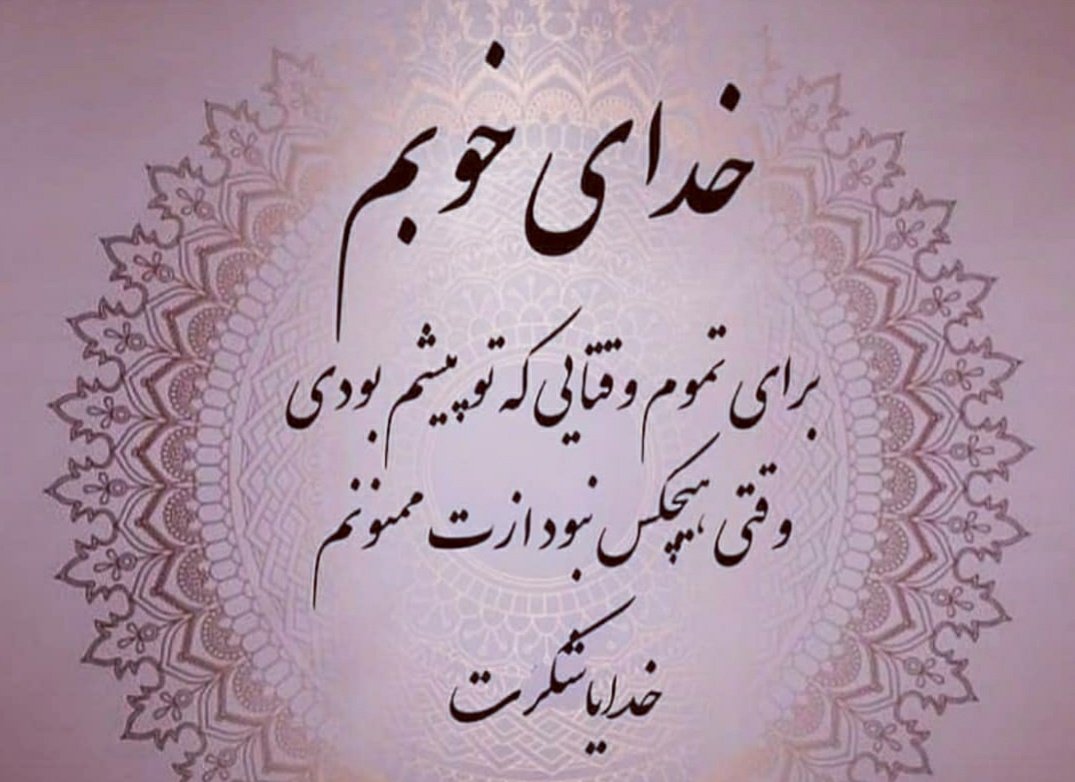 خدای خوبم
برای تموم وقتایی که تو پیشم بودی
وقتی هیچکس نبود ازت ممنونم
خدایا شکرت